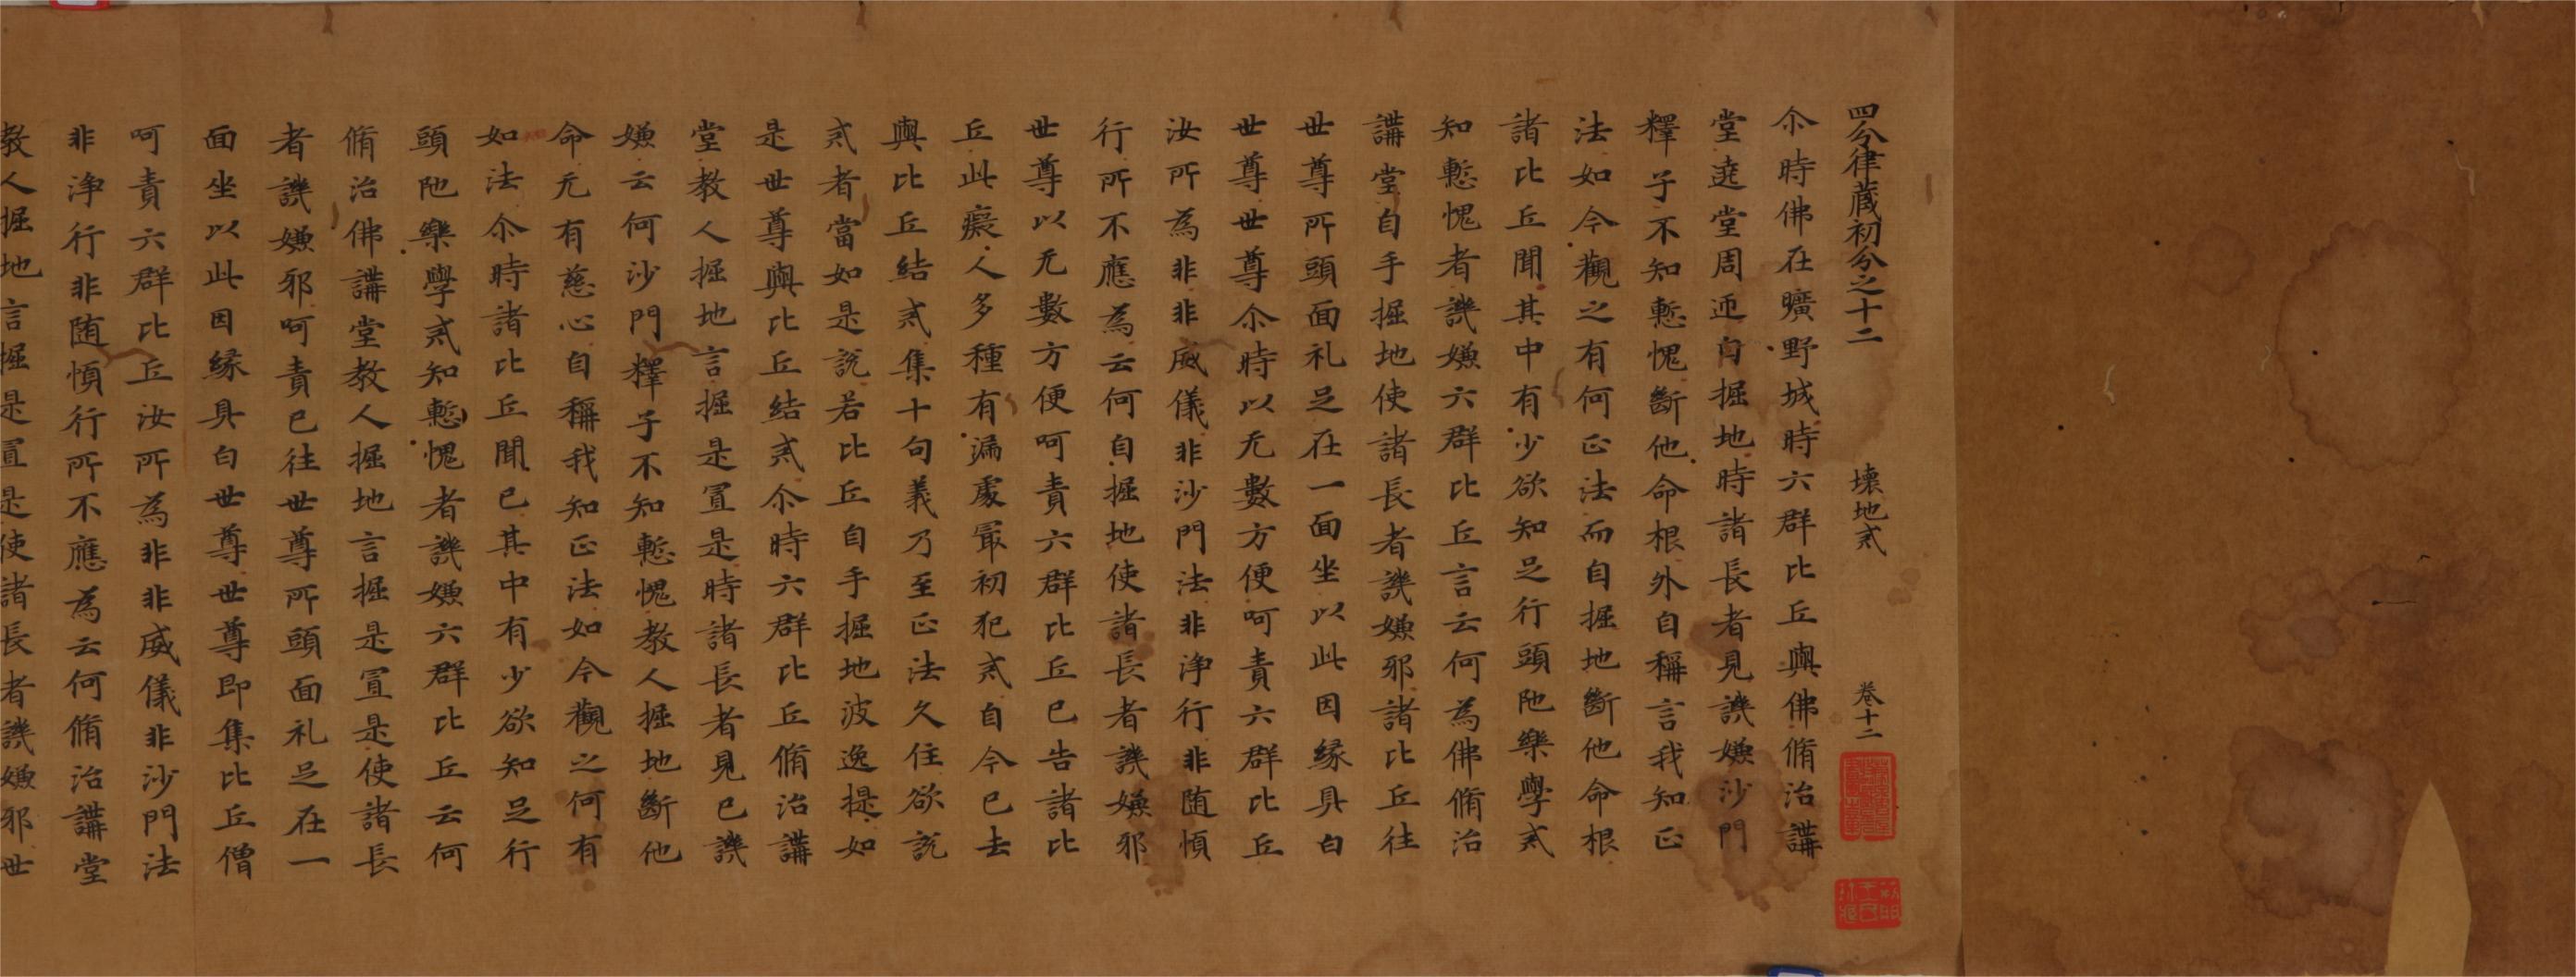 四分律藏初分之十二 壞地戒 卷十二
尒時佛在曠野城時六群比丘與佛脩治講
堂遶堂周迊自掘地時諸長者見譏嫌沙門
釋子不知慙愧斷他命根外自稱言我知正
法如今觀之有何正法而自掘地斷他命根
諸比丘聞其中有少欲知足行頭陁樂學戒
知慙愧者譏嫌六群比丘言云何為佛脩治
講堂自手掘地使諸長者譏嫌邪諸比丘往
世尊所頭面礼足在一面坐以此因緣具白
世尊世尊尒時以无數方便呵責六群比丘
汝所為非非威儀非沙門法非淨行非随順
行所不應為云何自掘地使諸長者譏嫌邪
世尊以无數方便呵責六群比丘已告諸比
丘此癡人多種有漏處冣初犯戒自今已去
與比丘結戒集十句義乃至正法久住欲說
戒者當如是說若比丘自手掘地波逸提如
是世尊與比丘結戒尒時六群比丘脩治講
堂教人掘地言掘是置是時諸長者見已譏
嫌云何沙門釋子不知慙愧教人掘地斷他
命无有慈心自稱我知正法如今觀之何有
如法尒時諸比丘聞已其中有少欲知足行
頭陁樂學戒知慙愧者譏嫌六群比丘云何
脩治佛講堂教人掘地言掘是置是使諸長
者譏嫌邪呵責已往世尊所頭面礼足在一
面坐以此因緣具白世尊世尊即集比丘僧
呵責六群比丘汝所為非非威儀非沙門法
非淨行非随順行所不應為云何脩治講堂
教人掘地言掘是置是使諸長者譏嫌邪世